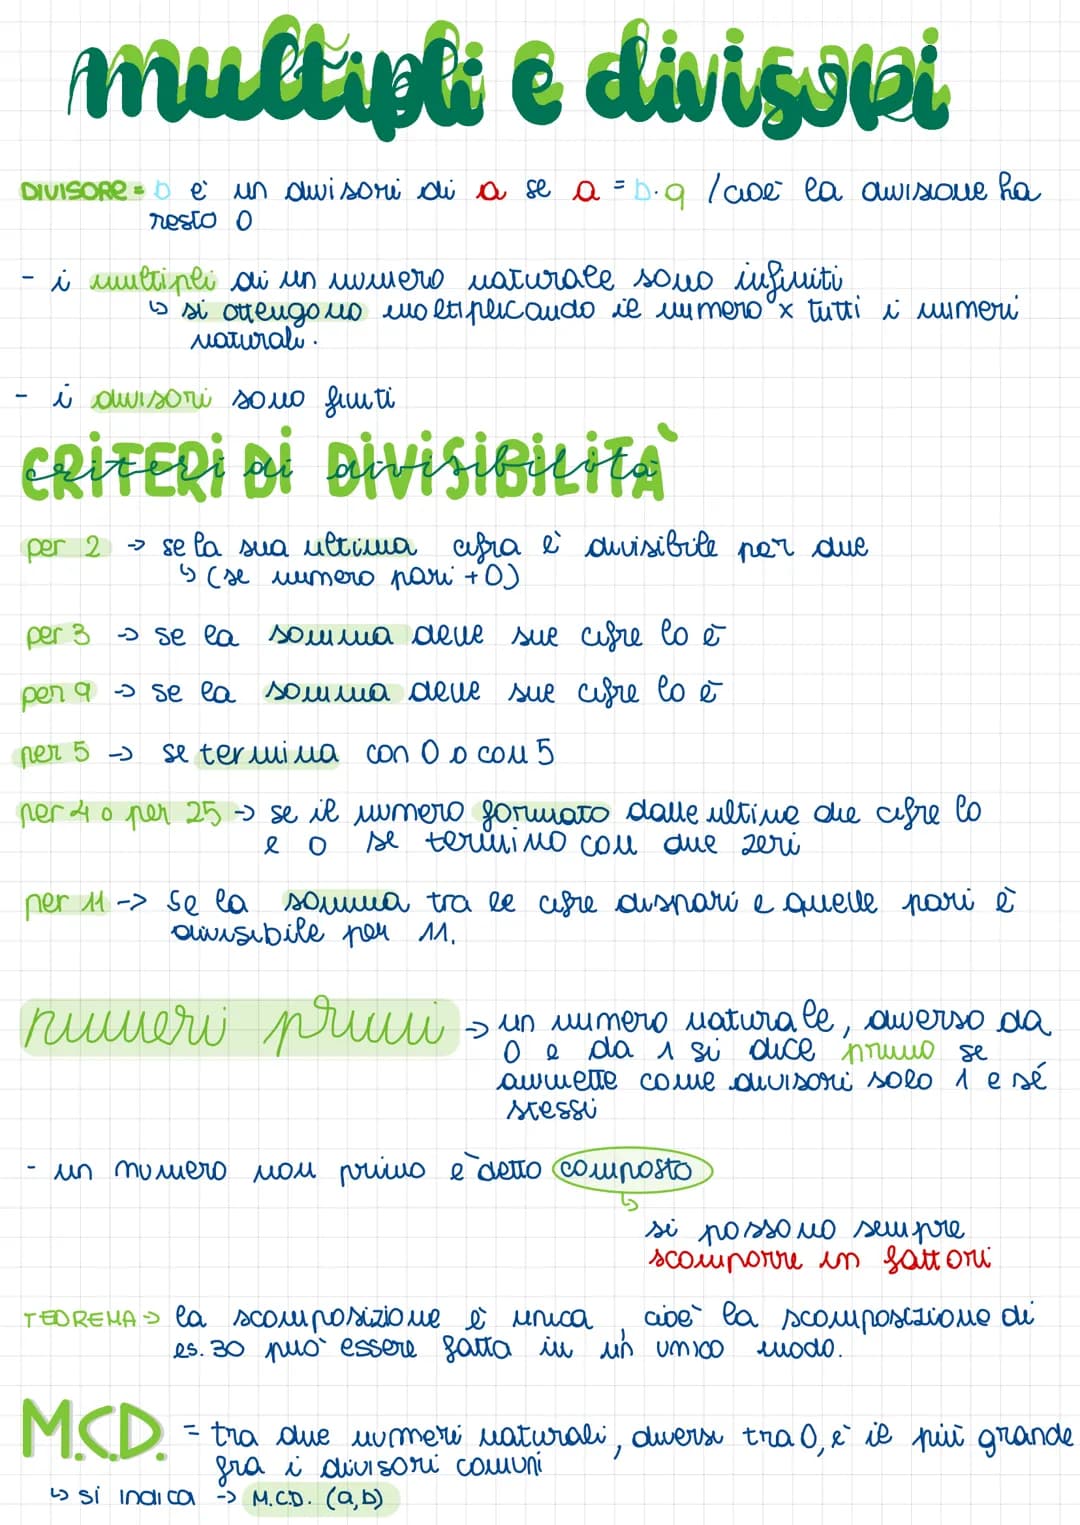 multipli e divisori
DIVISORE = b è un divisori di a se a = b·q / cioè la divisione ha
resto 0
- i multipli di un numero naturale sono infiniti
↳ si ottengono moltiplicando il numero x tutti i numeri
naturali.
- i divisori sono finiti
CRITERI DI DIVISIBILITÀ
criteri di divisibilità
per 2 → se la sua ultima cifra è divisibile per due
↳ (se numero pari + 0)
per 3 → se la somma delle sue cifre lo è
per 9 → se la somma delle sue cifre lo è
per 5 → se termina con 0 o con 5
per 4 o per 25 → se il numero formato dalle ultime due cifre lo
è o se termino con due zeri
per 11 -> se la somma tra le cifre dispari e quelle pari è
divisibile per 11.
numeri primi → un numero naturale, diverso da
0 e da 1 si dice primo se
ammette come divisori solo 1 e sé
stessi
- un numero non primo è detto composto
↳
si possono sempre
scomporre in fattori
TEOREMA → la scomposizione è unica, cioè la scomposizione di
es. 30 può essere fatta in un unico modo.
M.C.D. = tra due numeri naturali, diversi tra 0, è il più grande
fra i divisori comuni
↳ si indica -> M.C.D. (a,b)